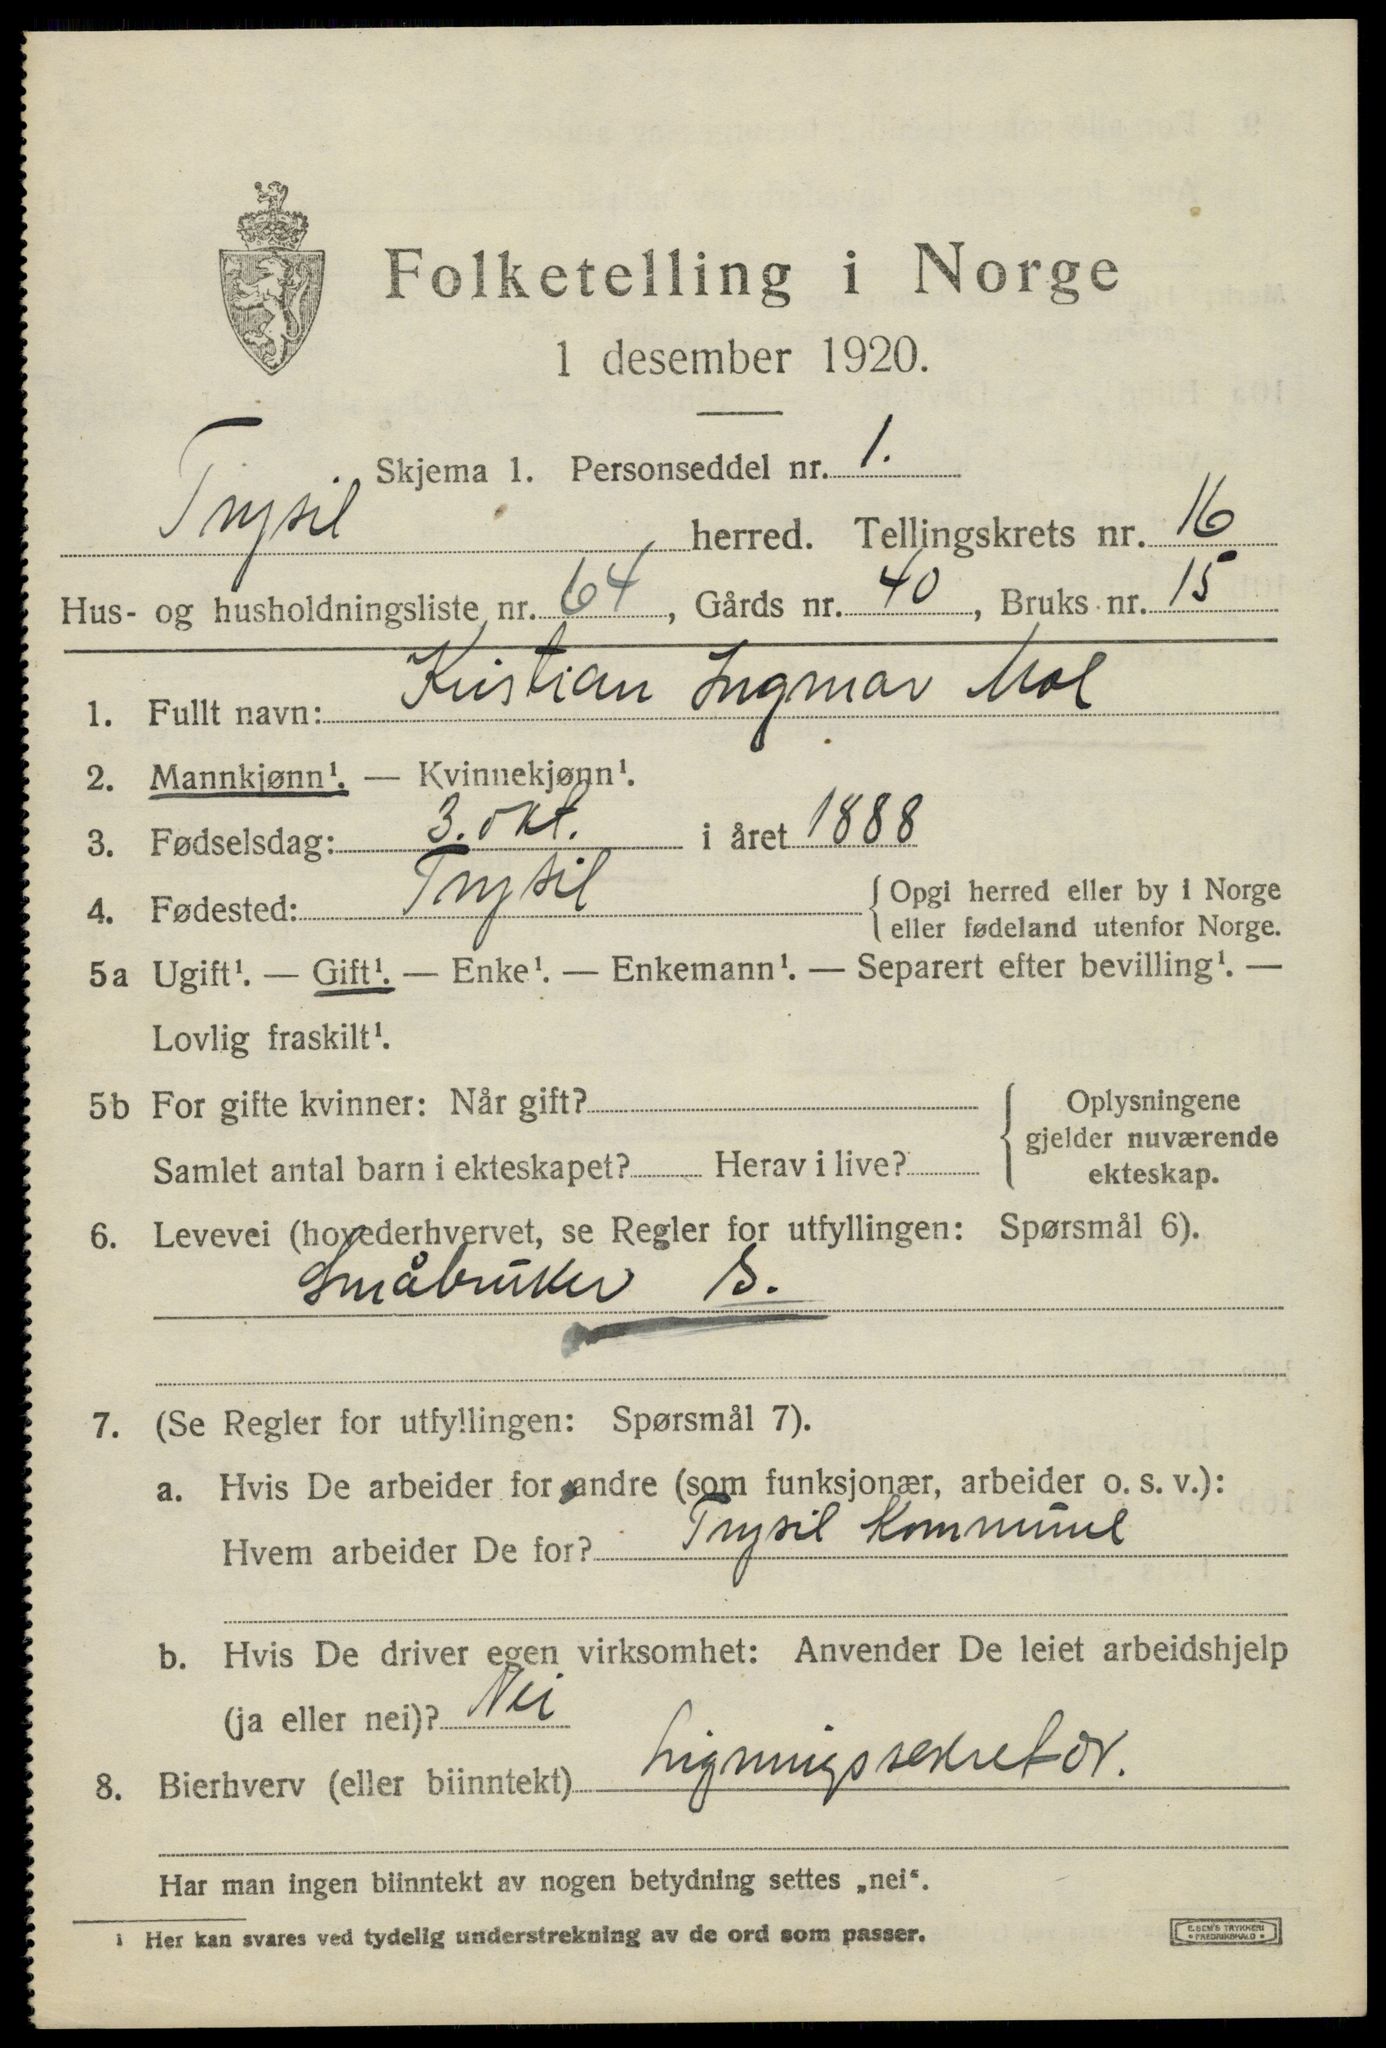 Folketelling i Norge
1 desember 1920.
Skjema 1. Personseddel nr. 1.
Trysil herred. Tellingskrets nr. 16
Hus- og husholdningsliste nr. 64, Gårds nr. 40, Bruks nr. 15
1. Fullt navn: Kristian Ingmar Moe
2. Mannkjønn¹. — Kvinnekjønn¹.
3. Fødselsdag: 3. okt. i året 1888
4. Fødested: Trysil { Opgi herred eller by i Norge
eller fødeland utenfor Norge.
5a Ugift¹. — Gift¹. — Enke¹. — Enkemann¹. — Separert efter bevilling¹. —
Lovlig fraskilt¹.
5b For gifte kvinner: Når gift? { Oplysningene
gjelder nuværende
Samlet antal barn i ekteskapet? Herav i live? ekteskap.
6. Levevei (hovederhvervet, se Regler for utfyllingen: Spørsmål 6).
Småbruker S.
7. (Se Regler for utfyllingen: Spørsmål 7).
a. Hvis De arbeider for andre (som funksjonær, arbeider o. s. v.):
Hvem arbeider De for? Trysil Kommune
b. Hvis De driver egen virksomhet: Anvender De leiet arbeidshjelp
(ja eller nei)? Nei
8. Bierhverv (eller biinntekt) Ligningssekretær.
Har man ingen biinntekt av nogen betydning settes „nei“.
¹ Her kan svares ved tydelig understrekning av de ord som passer.
E. SEM'S TRYKKERI
• FREDRIKSHALD •